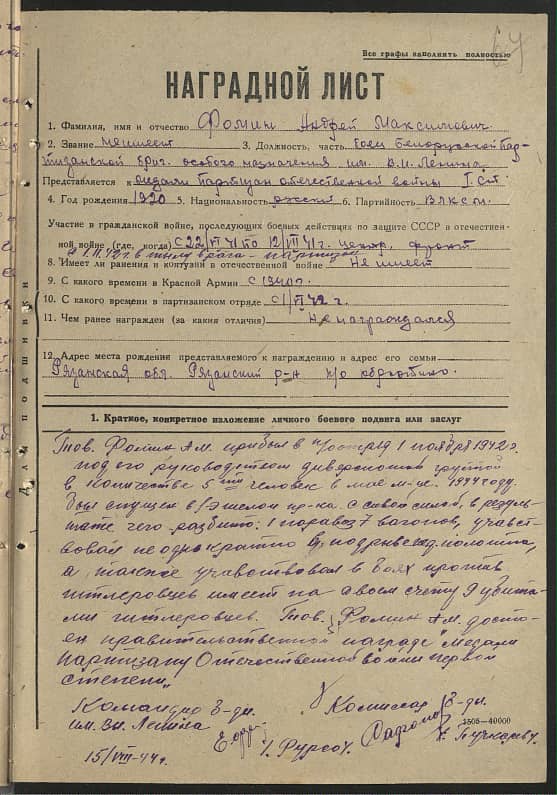 64
Все графы заполнять полностью
НАГРАДНОЙ ЛИСТ
1. Фамилия, имя и отчество Фомин Андрей Максимович
2. Звание не имеет 3. Должность, часть Боец Белорусской Пар-
тизанской бриг. особого назначения им. В.И. Ленина
Представляется к медали Партизан отечественной войны I ст.
4. Год рождения 1920 5. Национальность русский 6. Партийность ВЛКСМ.
Участие в гражданской войне, последующих боевых действиях по защите СССР в отечествен-
ной войне (где, когда) с 22/VI 41 по 12/VII 41 г. центр. фронт
в тылу врага - партизан
8. Имеет ли ранения и контузии в отечественной войне Не имеет
9. С какого времени в Красной Армии с 1940 г.
10. С какого времени в партизанском отряде с 1/ 42 г.
11. Чем ранее награжден (за какие отличия) Не награждался
12. Адрес места рождения представляемого к награждению и адрес его семьи
Рязанская обл. Рязанский р-н п/о
Для подшивки
1. Краткое, конкретное изложение личного боевого подвига или заслуг
Тов. Фомин А.М. прибыл в отряд 1 ноября 1942 г.
под его руководством диверсионной группой
в количестве 5 ти человек в мае м-це. 1944 году.
был спущен в/эшелон пр-ка с живой силой, в резуль-
тате чего разбито: 1 паравоз 7 вагонов, учавст-
вовал неоднократно в подрыве ж.д. полотна,
а также учавствовал в боях против
гитлеровцев имеет на своем счету 9 убиты-
ми гитлеровцев. Тов. Фомин А.М. досто-
ен правительственной награде "Медали
Партизану Отечественной войны первой
степени".
Командир б-ды. Комиссар б-ды.
им. Вл. Ленина
/. Фурсов. Н. Пучкарев/.
1505—40000
15/VIII-44 г.